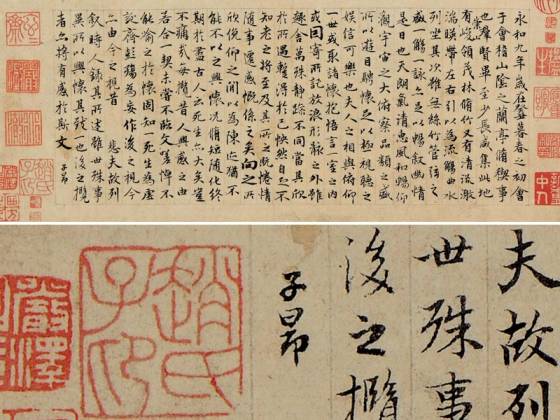 永和九年歲在癸丑暮春之初會
于會稽山陰之蘭亭脩稧事
也羣賢畢至少長咸集此地
有崇山峻領茂林脩竹又有清流激
湍暎帶左右引以為流觴曲水
列坐其次雖無絲竹管弦之
盛一觴一詠亦足以暢敘幽情
是日也天朗氣清惠風和暢仰
觀宇宙之大俯察品類之盛
所以遊目騁懷足以極視聽之
娛信可樂也夫人之相與俯仰
一世或取諸懷抱悟言一室之內
或因寄所託放浪形骸之外雖
趣舍萬殊靜躁不同當其欣
於所遇暫得於己怏然自足不
知老之將至及其所之既惓情
隨事遷感慨係之矣向之所
欣俛仰之間以為陳迹猶不
能不以之興懷況脩短隨化終
期於盡古人云死生亦大矣豈
不痛哉每攬昔人興感之由
若合一契未嘗不臨文嗟悼不
能喻之於懷固知一死生為虛
誕齊彭殤為妄作後之視今
亦由今之視昔悲夫故列
敘時人錄其所述雖世殊事
異所以興懷其致一也後之攬
者亦將有感於斯文
子昂
夫故列
世殊事
後之攬
子昂
趙氏子印